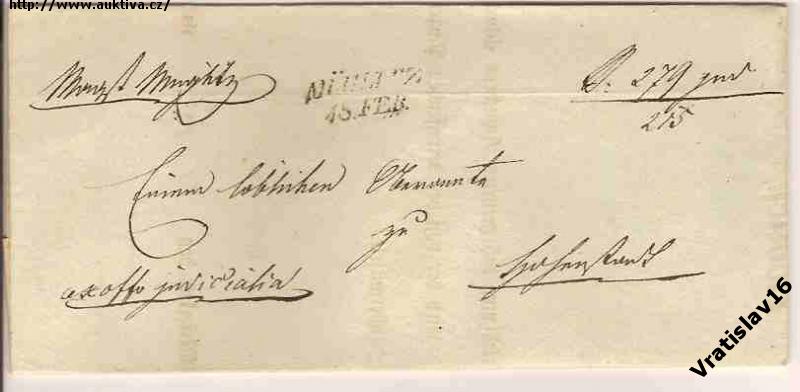 http://www.auktiva.cz/
Magst Müglitz
MÜGLITZ
18. FEB.
N. 279 jud
215
Einem löblichen Oberamte
zu
Hohenstadt
ex offo judicialia
Vratislav16